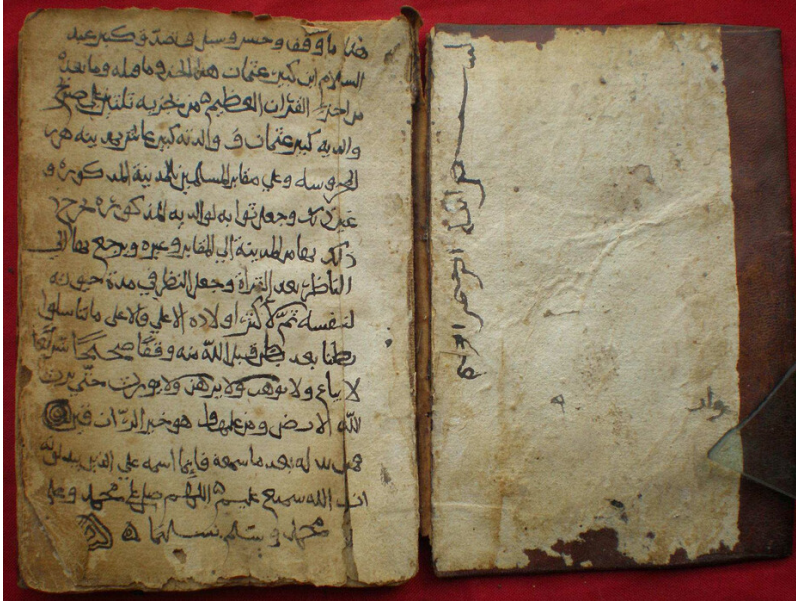 هذا ما وقف وحبس وسبل وتصدق كبير عبد
السلام ابن كبير عثمان هذا الجزؤ وما قبله وما بعده
من اجزاء القرءان العظيم من تجزية ثلثين على ضريح
والديه كبير عثمان و والدته كبير عائشة بمدينة هرر
المحروسة وعلى مقابر المسلمين بالمدينة المذكورة و
غير ذلك وجعل ثوابه لوالديه المذكورة خرج
ذلك بها من المدينة الي المقابر وغيره ويرجع بها الى
الناظر بعد القراة وجعل النظر في مدة حيوته
لنفسه ثم لاكبر اولاده الاعلي فالاعلى ما تناسلوا
بطنا بعد بطن قبل الله منه وقفا صحيحا شرعيا
لا يباع ولا يوهب ولا يرهن ولا يورث حتى يرث
الله الارض ومن عليها وهو خير الوارثين
فمن بدله بعد ما سمعه فانما اثمه علي الذين يبدلونه
ان الله سميع عليم اللهم صل على محمد وعلى
محمد وسلم تسليما
بسم الله الرحمن الرحيم